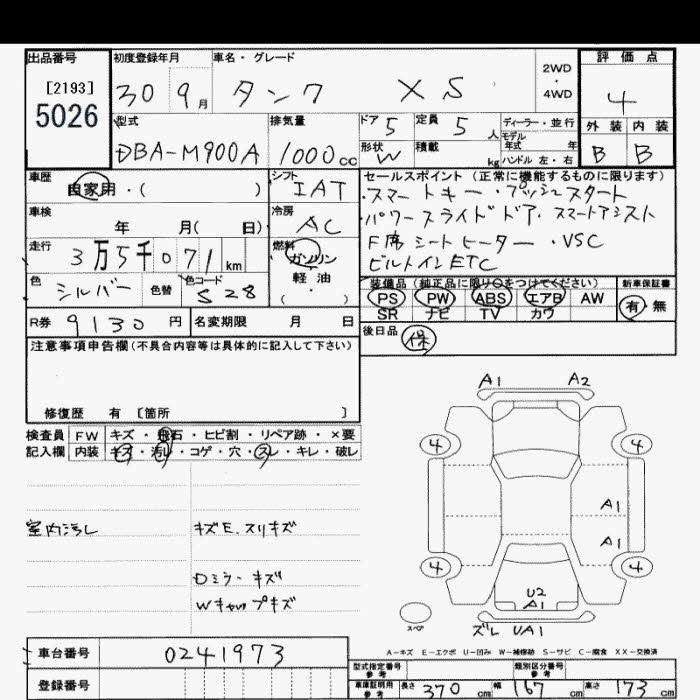 出品番号 初度登録年月 車名・グレード 評価点
[2193] 30 9月 タンク XS 2WD・4WD 4
5026
型式 排気量 ドア 5 定員 5人 ディーラー・並行 外装 内装
モデル年式 年
DBA-M900A 1000cc 形状 W 積載 kg ハンドル 左・右 B B
車歴 シフト セールスポイント(正常に機能するものに限ります)
自家用・( ) IAT ・スマートキー・プッシュスタート
車検 冷房 ・パワースライドドア・スマートアシスト
年 月( 日) AC F席シートヒーター・VSC
走行 燃料 ビルトインETC
3万5千071km ガソリン
軽油
・
( )
色 シルバー 色替 色コード S28
装備品(純正品に限り○をつけてください) 新車保証書
PS PW ABS エアB AW 有・無
SR ナビ TV カワ
R券 9130円 名変期限 月 日
後日品 保
注意事項申告欄(不具合内容等は具体的に記入して下さい)
修復歴 有 [箇所 ]
検査員 FW キズ・飛石・ヒビ割・リペア跡・×要
記入欄 内装 キズ・汚レ・コゲ・穴・スレ・キレ・破レ
A1 A2
4 4
A1
A1
4 4
U2
A1
スペア ズレ UA1
室内汚レ キズE.スリキズ
Dミラーキズ
Wキャップキズ
A-キズ E-エクボ U-凹み W-補修跡 S-サビ C-腐食 XX-交換済
車台番号 0241973
型式指定番号 参考 類別区分番号 参考
登録番号
車庫証明用 参考 長さ 370cm 幅 167cm 高さ 173cm